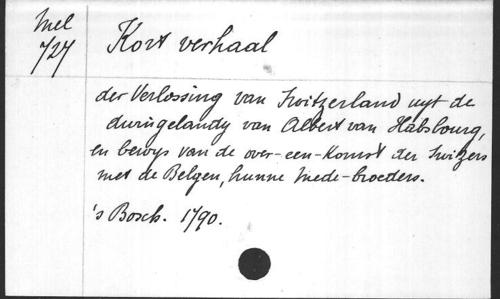 Mel
727
Kort verhaal
der Verlossing van Switzerland uyt de
dwingelandy van Albert van Habsbourg,
en bewys van de over-een-komst der Switzers
met de Belgen, hunne Mede-broeders.
's Bosch. 1790.